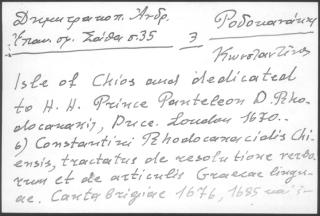 Δημητρακοπ. Ἀνδρ.
Ἐπαν. σφ. Σάθα σ.35
3
Ροδοκανάκης
Κωνσταντῖνος
Isle of Chios and dedicated
to H. H. Prince Panteleon D. Rho-
docanakis, Duce. London 1670..
6) Constantini Rhodocanacidis Chi-
ensis, tractatus de resolutione verbo-
rum et de articulis Graecae lingu-
ae. Cantabrigiae 1676, 1685 καὶ